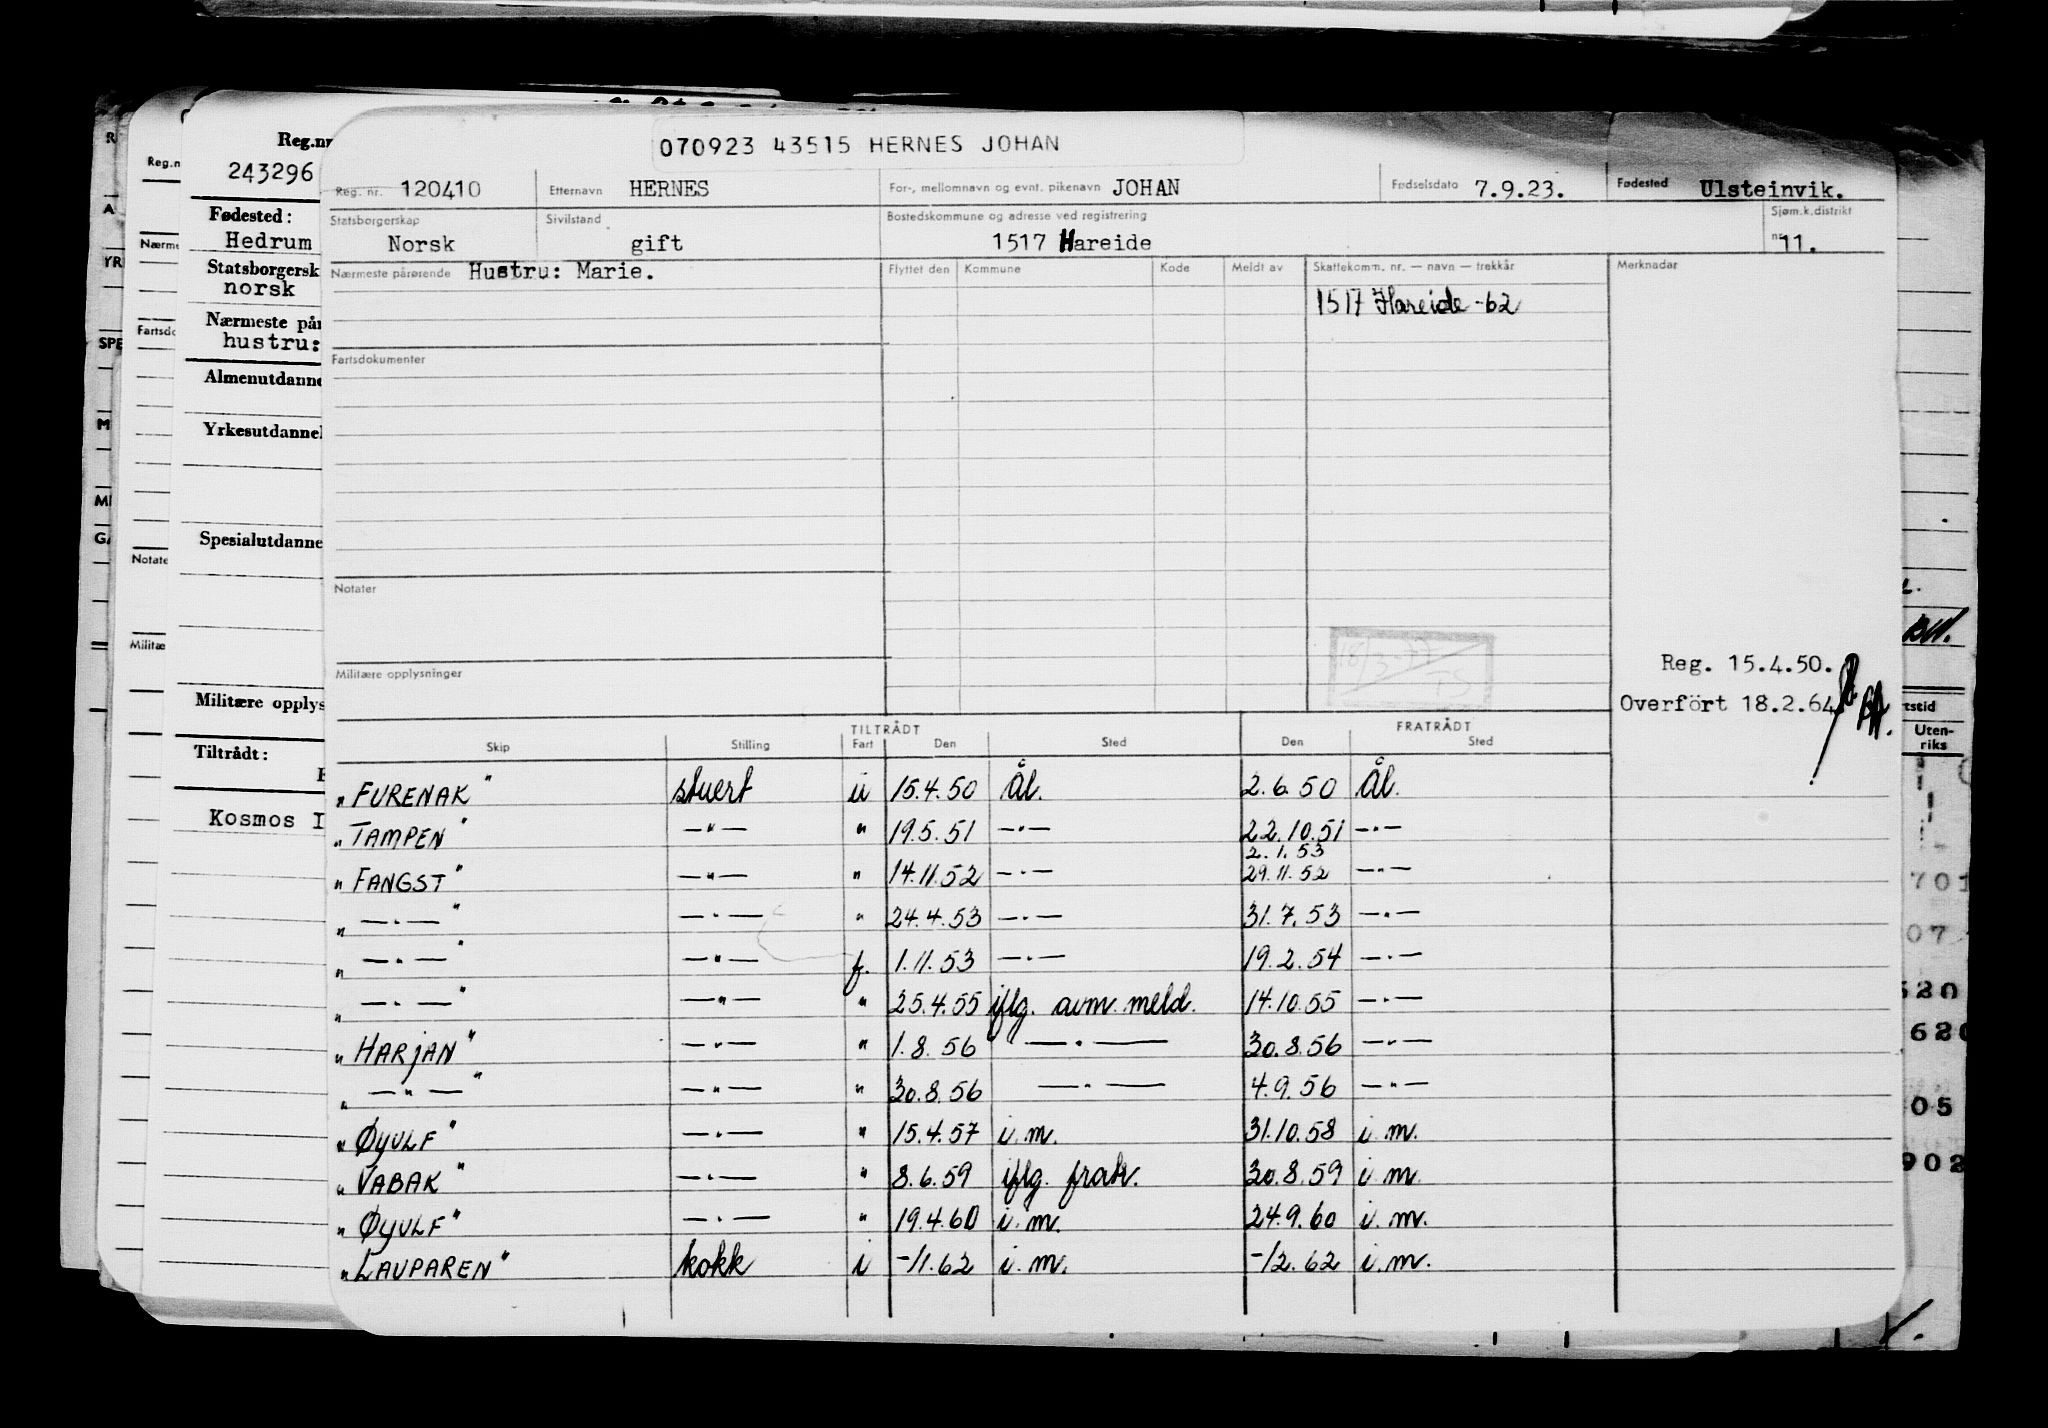 070923 43515 HERNES JOHAN
Reg. nr. 120410 Etternavn HERNES For-, mellomnavn og evnt. pikenavn JOHAN Fødselsdato 7.9.23. Fødested Ulsteinvik.
Statsborgerskap Norsk Sivilstand gift Bostedskommune og adresse ved registrering 1517 Hareide Sjøm.k.distrikt nr. 11.
Nærmeste pårørende Hustru: Marie. Flyttet den Kommune Kode Meldt av Skattekomm. nr. — navn — trekkår Merknadar
1517 Hareide -62
Fartsdokumenter
Notater
Militære opplysninger
18/3-77
TS
Reg. 15.4.50.
Overført 18.2.64
TILTRÅDT FRATRÅDT
Skip Stilling Fart Den Sted Den Sted
"FURENAK" stuert u 15.4.50 Ål. 2.6.50 Ål.
"TAMPEN" —"— " 19.5.51 —"— 22.10.51 —"—
2.1.53
"FANGST" —"— " 14.11.52 —"— 29.11.52 —"—
"—"—" —"— " 24.4.53 —"— 31.7.53 —"—
"—"—" —"— f. 1.11.53 —"— 19.2.54 —"—
"—"—" —"— " 25.4.55 iflg. avm. meld. 14.10.55 —"—
"HARJAN" —"— " 1.8.56 —"— 30.8.56 —"—
"—"—" —"— " 30.8.56 —"— 4.9.56 —"—
"ØYULF" —"— " 15.4.57 i.m. 31.10.58 i.m.
"VABAK" —"— " 8.6.59 iflg. frak. 30.8.59 i.m.
"ØYULF" —"— " 19.4.60 i.m. 24.9.60 i.m.
"LAUPAREN" kokk i -11.62 i.m. -12.62 i.m.
Reg.nr
243296
Fødested:
Hedrum
Statsborgersk
norsk
Nærmeste pår
hustru:
Almenutdanne
Yrkesutdannel
Spesialutdanne
Militære opplys
Tiltrådt:
Kosmos I
Reg.n
Nærme
Fartsdo
Notate
Militæ
R
A
YR
SPE
M
MI
GA
BW.
tstid
Uten-
riks
701
07
520
620
05
902